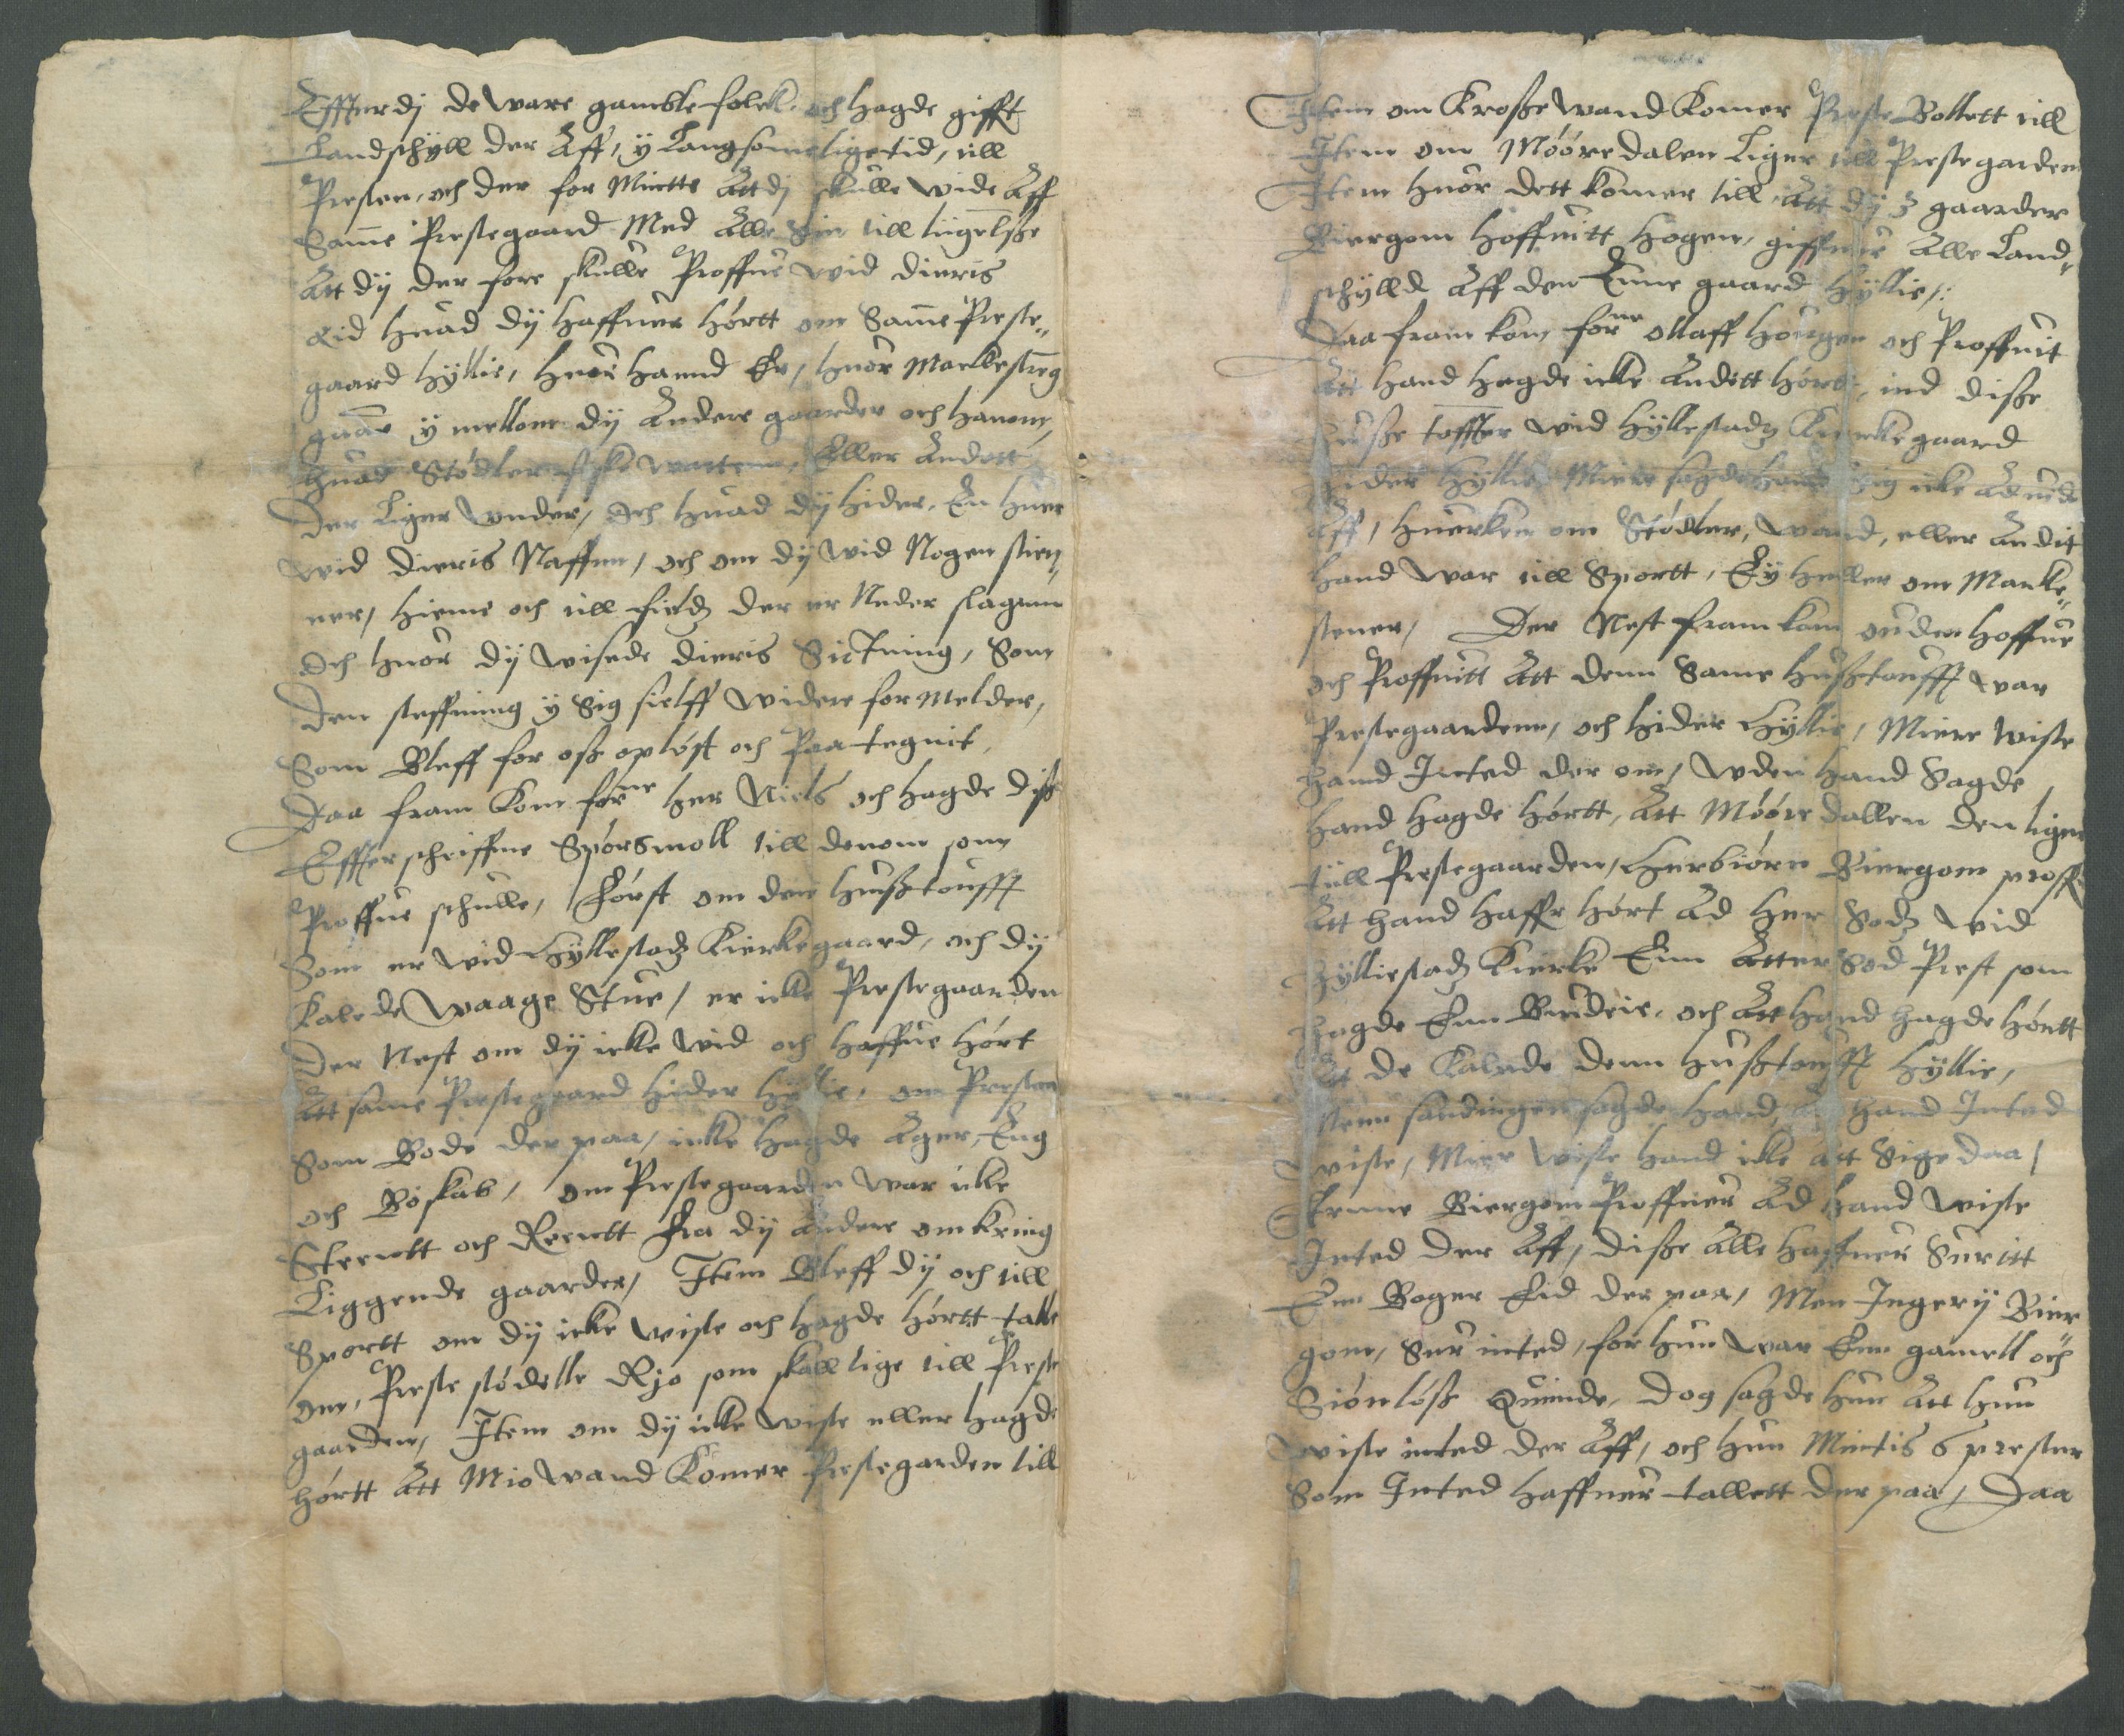 Effterdj de ware gamble folck och hagde gifft
Landschyll der Aff, y Langsomelige tid, till
Presten, och der for Miette Att dj skulle wide Aff
Samme Prestegaard Med Alle Sin till liigelße
Att dy der fore skulle Proffue wid dieris
Eid huad dy haffuer hørtt om Samme Preste„
gaard Hyllie, huor hannd Er, huor Marckesteg
gaae y mellom dy Andere gaarder och hanom,
huad Stødler fiske wattenn, Eller Andett
Der Liger wnder, Och huad dy hider, En huer
wid dieris Naffnn, och om dy wid Nogen stien„
ner, hieme och till fieldz der er Neder slagenn
Och huor dy wisede dieris Sictning, Som
Den steffning y Sig sielff widere formelder,
Som Bleff for oß opløst och Paategnit,
Daa fram kom forne her Niels och hagde diß
Effterschriffne Spørsmoll till denom som
Proffue schulle, Først om den hußtoufft
Som er wid Hyllestadz Kierkegaard, och dy
Kalede Waage Stue, er icke Prestegaarden
Der Nest om dy icke wid och haffue hørt
Att samme Prestegaard hider Hyllie, om Presten
Som Bode der paa, icke hagde Ager, Eng
och Bøskab, om Prestegaarden war icke
Steentt och Reentt fra dy Andere omkring
Liggende gaarder, Item Bleff dy och till
Sportt om dy icke wiste och hagde hørtt talle
om, Preste stødelle Rjo som skall lige till Preste
gaarden, Item om dy icke wiste eller hagde
hørtt Att Mio wand Komer Prestegarden till
Item om Kroße wand Komer Preste Bollett till
Item om Mööredalen Liger till Prestegarden
Item huor dett komer till Att dy 3 gaarder
Biergom Hoffuitt Hogen, giffuer Alle Land„
schylld Aff den Enne gaard Hyllie,
Daa fram kom forne ollaff Hougen och Proffuit
Att hand hagde icke Andett hørtt, ind diße
huße toffter wid Hyllestadz Kierkegaard
hider Hyllie Miere sagde hand sig icke Ad wide
Aff, huerken om Stødler, wand, eller Andit
hand war till Sportt, Ey heller om Marcke„
stener, Der Nest fram kom ouden Hoffue
och Proffuitt Att denn Same hußtoufft war
Prestegaardenn, och hider Hyllie, Miere wiste
hand Inted der om, wden hand Sagde
hand hagde hørtt, Att Mööredallen den ligger
till Prestegaarden, Herbiørn Biergom proff
Att hand haffr hørt Ad her Sodz wid
Hylliestadz Kierke Enn Atter Sod Prest som
hagde Enn Budeie, och Att hand hagde hørtt
Att de Kalede denn hußtoufft Hyllie,
Menn sandingen sagde hand, Att hand Inted
wiste, Mier wiste hand icke att Sige daa,
Stenne Biergom Proffuer Ad hand wiste
Inted der Aff, diße Alle haffuer Suritt
Enn Boger Eid der paa, Men Ingerij Bier
gom, Sur inted, for hun war Enn gamell och
Siønløß Quinde, dog sagde hun Att hun
wiste inted der Aff, och hun Mintis 6 prester
Som Inted haffuer tallett der paa, Daa